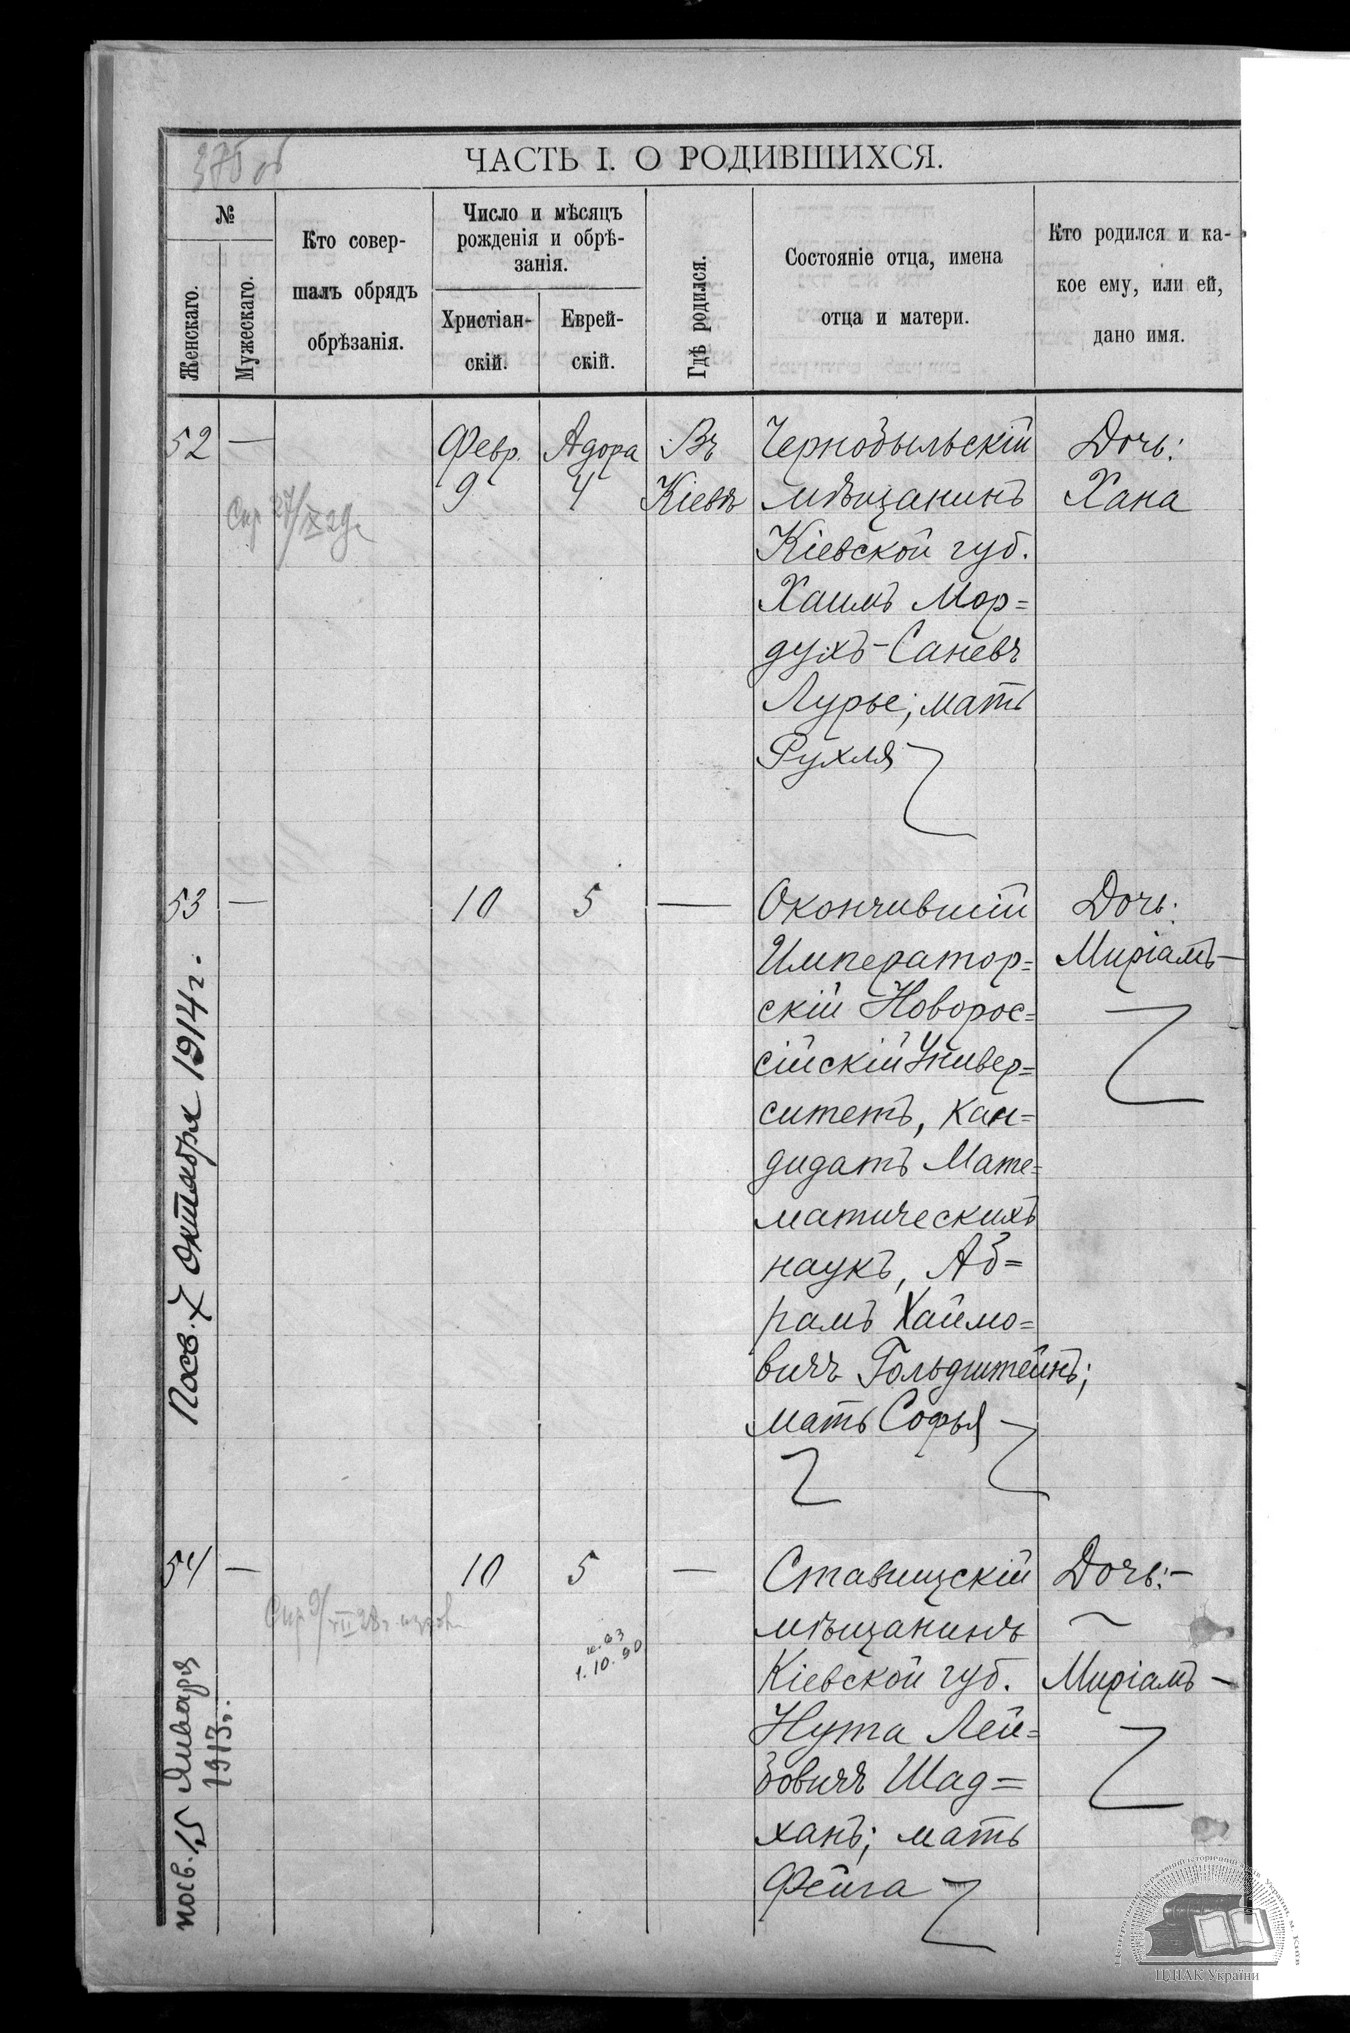 ЧАСТЬ I. О РОДИВШИХСЯ.
№
Женскаго.
Мужескаго.
Кто совер-
шалъ обрядъ
обрѣзанія.
Число и мѣсяцъ
рожденія и обрѣ-
занія.
Христіан-
скій.
Еврей-
скій.
Гдѣ родился.
Состояніе отца, имена
отца и матери.
Кто родился и ка-
кое ему, или ей,
дано имя.
52 —
Февр.
9
Адора
4
Въ
Кіевѣ
Чернобыльскій
мѣщанинъ
Кіевской губ.
Хаимъ Мор=
духъ-Саневъ
Лурье; мать
Рухля
Дочь:
Хана
53 —
10
5
—
Окончившій
Император=
скій Новорос=
сійскій Универ=
ситетъ, кан=
дидатъ Мате=
матическихъ
наукъ, Аб=
рамъ Хаймо=
вичъ Гольдштейнъ;
мать Софья
Дочь:
Миріамъ—
Посв. 7 Октября 1914 г.
54 —
10
5
—
1.10.90
Ставищскій
мѣщанинъ
Кіевской губ.
Нута Лей=
бовичъ Шад=
ханъ; мать
Фейга
Дочь:—
Миріамъ—
посв. 15 Января
1913 г.
ЦДІАК України